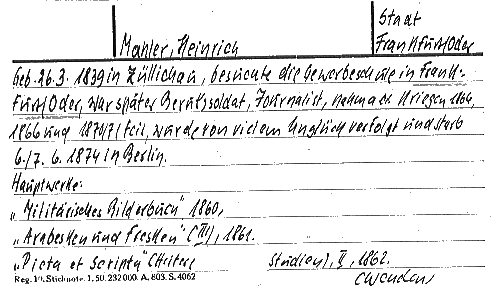 Stadt
Mahler, Heinrich Frankfurt/Oder
Geb. 26.3. 1839 in Züllichau, besuchte die Gewerbeschule in Frank-
furt/Oder, war später Berufssoldat, Journalist, nahm a.d. Kriegen 1864,
1866 und 1870/71 teil, wurde von vielem Unglück verfolgt und starb
6./7. 6. 1874 in Berlin.
Hauptwerke:
„Militärisches Bilderbuch" 1860,
„Arabesken und Fresken" (III), 1861.
„Picta et Scripta" (Heitere Studien), II, 1862.
Reg. 19. Stichnote. 1. 50. 232000. A. 803. S. 4062